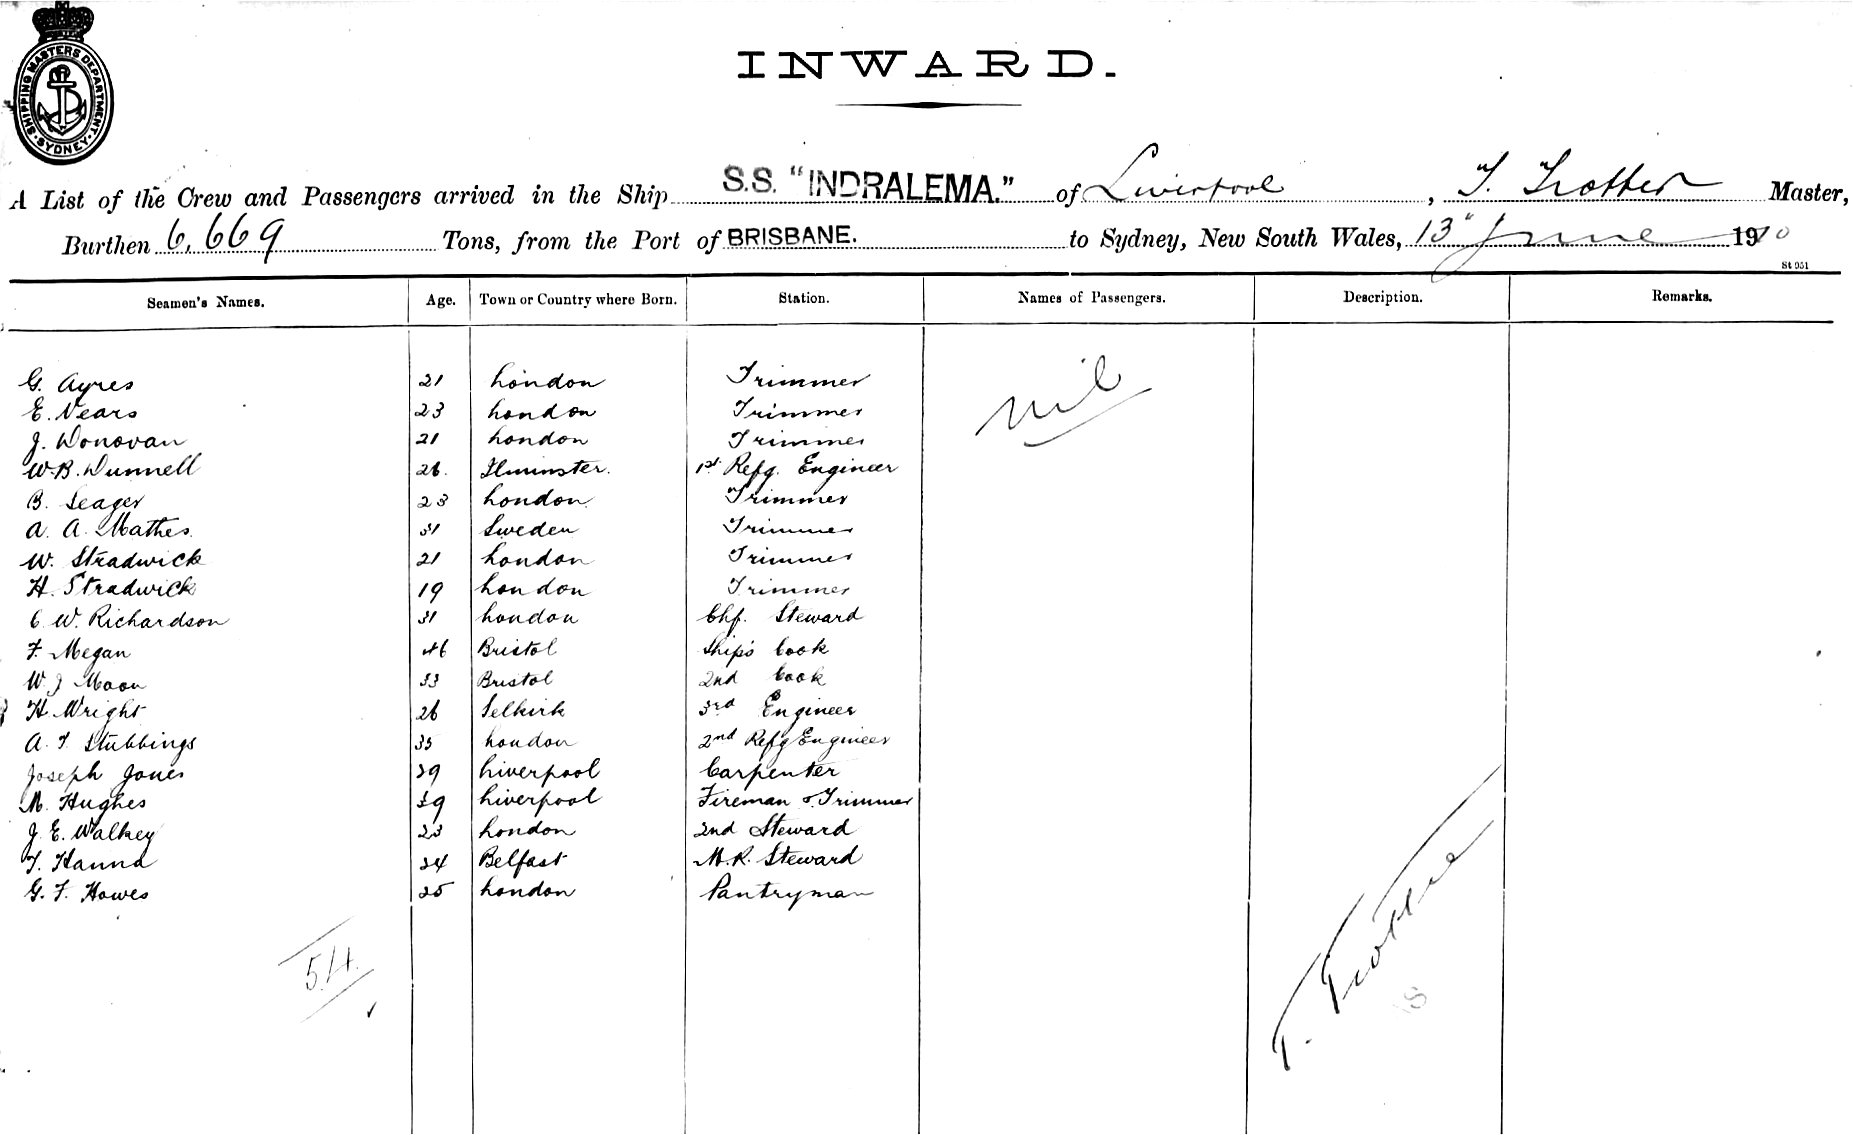 SHIPPING MASTERS DEPARTMENT. SYDNEY
INWARD.
A List of the Crew and Passengers arrived in the Ship S.S. "INDRALEMA." of Liverpool, T. Trotter Master,
Burthen 6,669 Tons, from the Port of BRISBANE. to Sydney, New South Wales, 13" June 1910
St 951
Seamen's Names. Age. Town or Country where Born. Station. Names of Passengers. Description. Remarks.
G. Ayres 21 London Trimmer nil
E. Vears 23 London Trimmer
J. Donovan 21 London Trimmer
W.B. Dunnell 26. Ilminster. 1st Refg. Engineer
B. Seager 23 London Trimmer
A. A. Mathes. 31 Sweden Trimmer
W. Stradwick 21 London Trimmer
H. Stradwick 19 London Trimmer
C. W. Richardson 31 London Chf. Steward
F. Megan 46 Bristol Ship's Cook
W. J Moon 33 Bristol 2nd Cook
H. Wright 26 Selkirk 3rd Engineer
A. T. Stubbings 35 London 2nd Refg Engineer
Joseph Jones 39 Liverpool Carpenter
M. Hughes 39 Liverpool Fireman & Trimmer
J. E. Walkey 23 London 2nd Steward
T. Hanna 24 Belfast M.R. Steward
G. F. Howes 25 London Pantryman
54.
T. Trotter
18